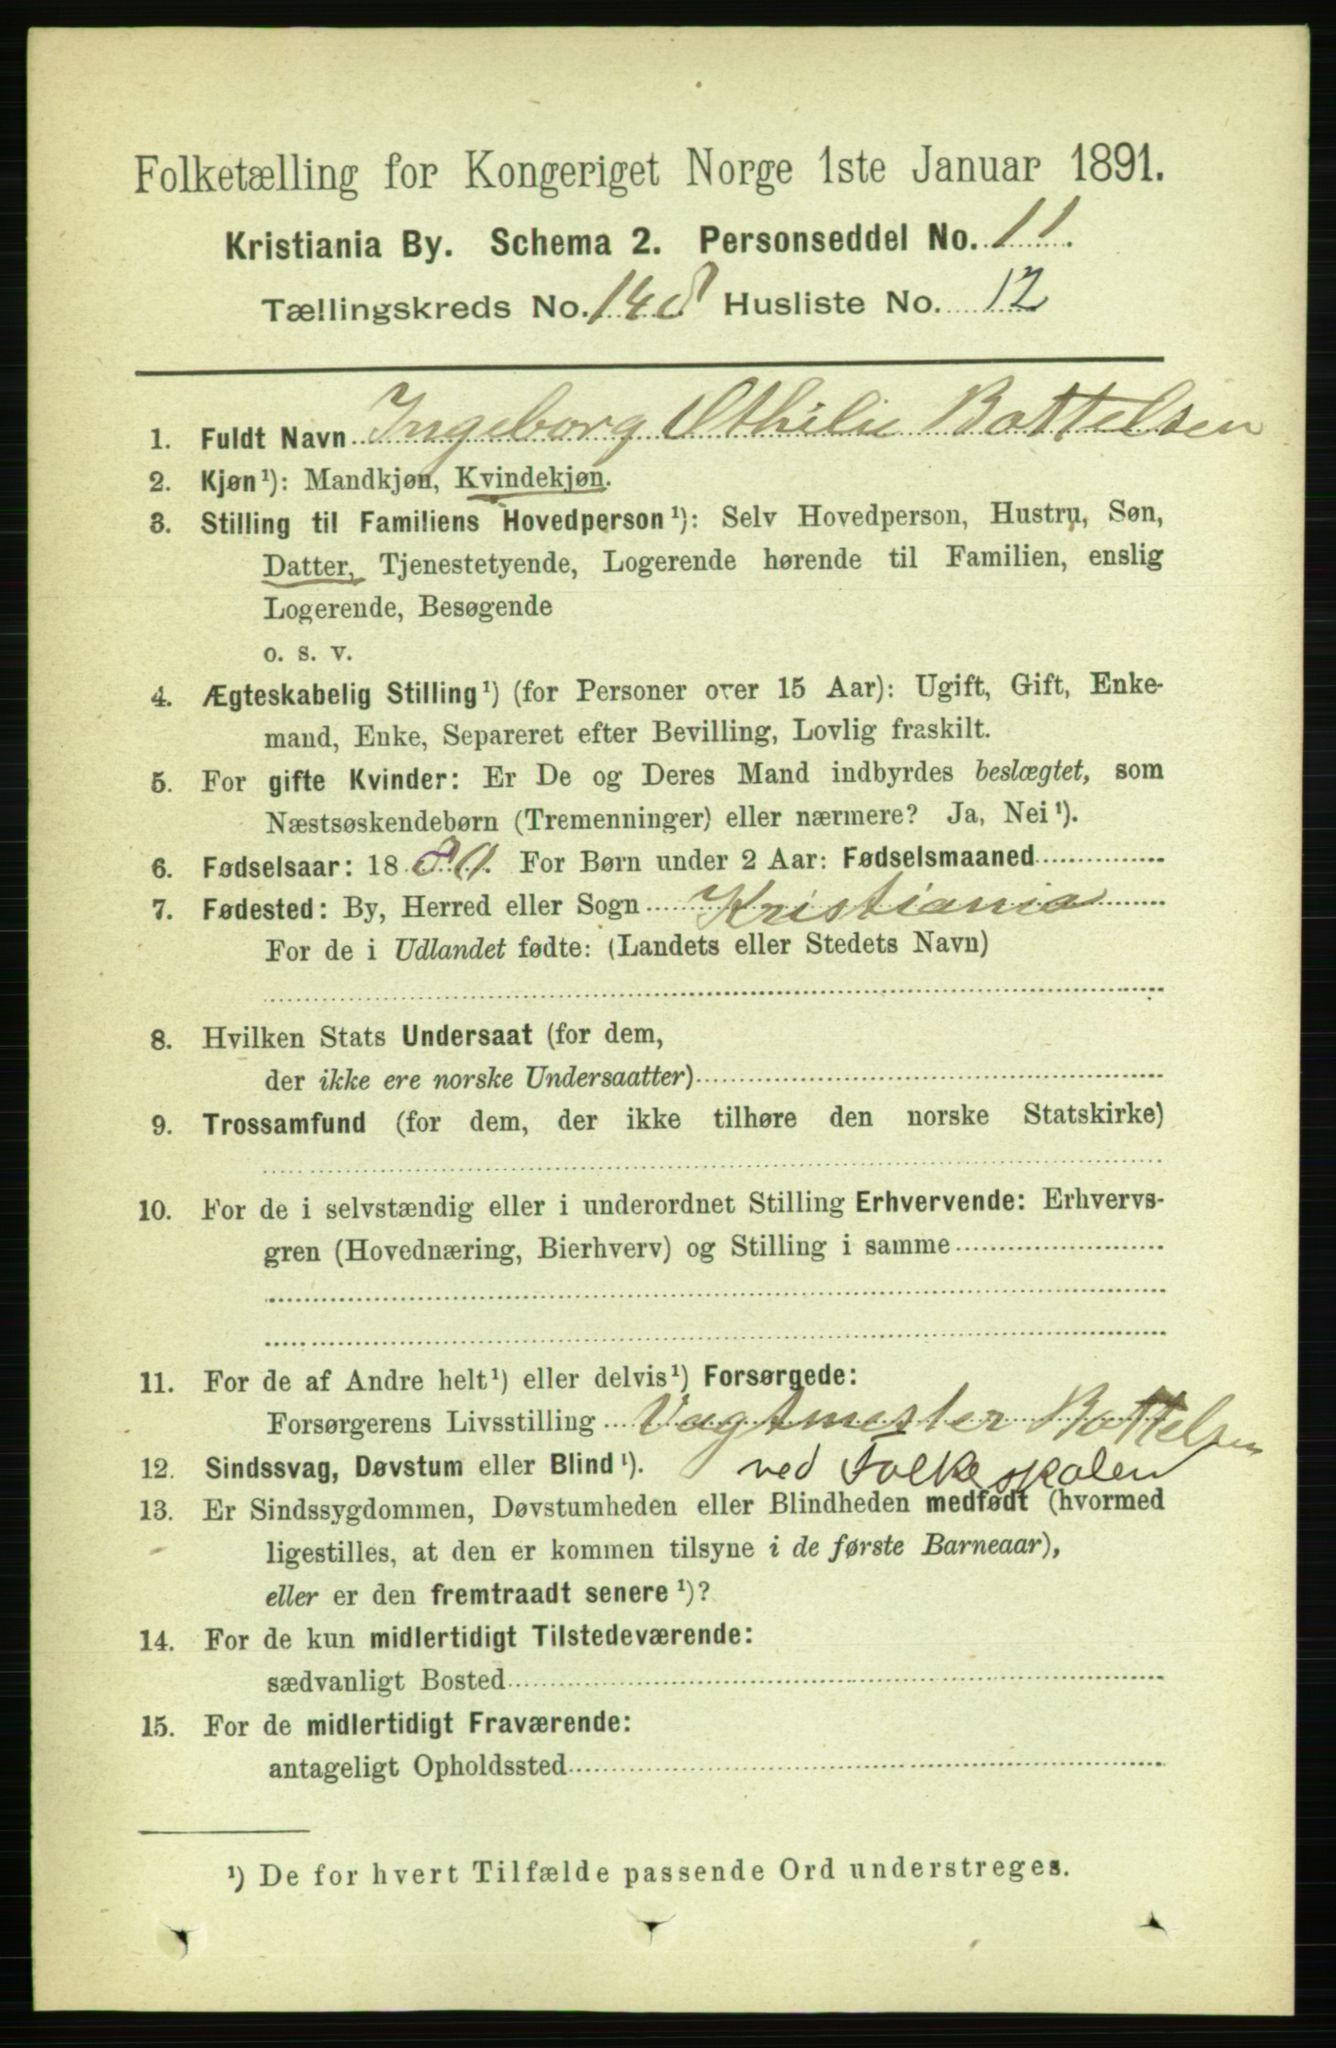 Folketælling for Kongeriget Norge 1ste Januar 1891.
Kristiania By. Schema 2. Personseddel No. 11.
Tællingskreds No. 148 Husliste No. 12
1. Fuldt Navn Ingeborg Othilie Bottelsen
2. Kjøn ¹): Mandkjøn, Kvindekjøn.
3. Stilling til Familiens Hovedperson ¹): Selv Hovedperson, Hustru, Søn,
Datter, Tjenestetyende, Logerende hørende til Familien, enslig
Logerende, Besøgende
o. s. v.
4. Ægteskabelig Stilling ¹) (for Personer over 15 Aar): Ugift, Gift, Enke-
mand, Enke, Separeret efter Bevilling, Lovlig fraskilt.
5. For gifte Kvinder: Er De og Deres Mand indbyrdes beslægtet, som
Næstsøskendebørn (Tremenninger) eller nærmere? Ja, Nei ¹).
6. Fødselsaar: 18 For Børn under 2 Aar: Fødselsmaaned
7. Fødested: By, Herred eller Sogn Kristiania
For de i Udlandet fødte: (Landets eller Stedets Navn)
8. Hvilken Stats Undersaat (for dem,
der ikke ere norske Undersaatter)
9. Trossamfund (for dem, der ikke tilhøre den norske Statskirke)
10. For de i selvstændig eller i underordnet Stilling Erhvervende: Erhvervs-
gren (Hovednæring, Bierhverv) og Stilling i samme
11. For de af Andre helt ¹) eller delvis ¹) Forsørgede:
Forsørgerens Livsstilling Vagtmester Bottelsen
12. Sindssvag, Døvstum eller Blind ¹). ved Folkeskolen
13. Er Sindssygdommen, Døvstumheden eller Blindheden medfødt (hvormed
ligestilles, at den er kommen tilsyne i de første Barneaar),
eller er den fremtraadt senere ¹)?
14. For de kun midlertidigt Tilstedeværende:
sædvanligt Bosted
15. For de midlertidigt Fraværende:
antageligt Opholdssted
¹) De for hvert Tilfælde passende Ord understreges.